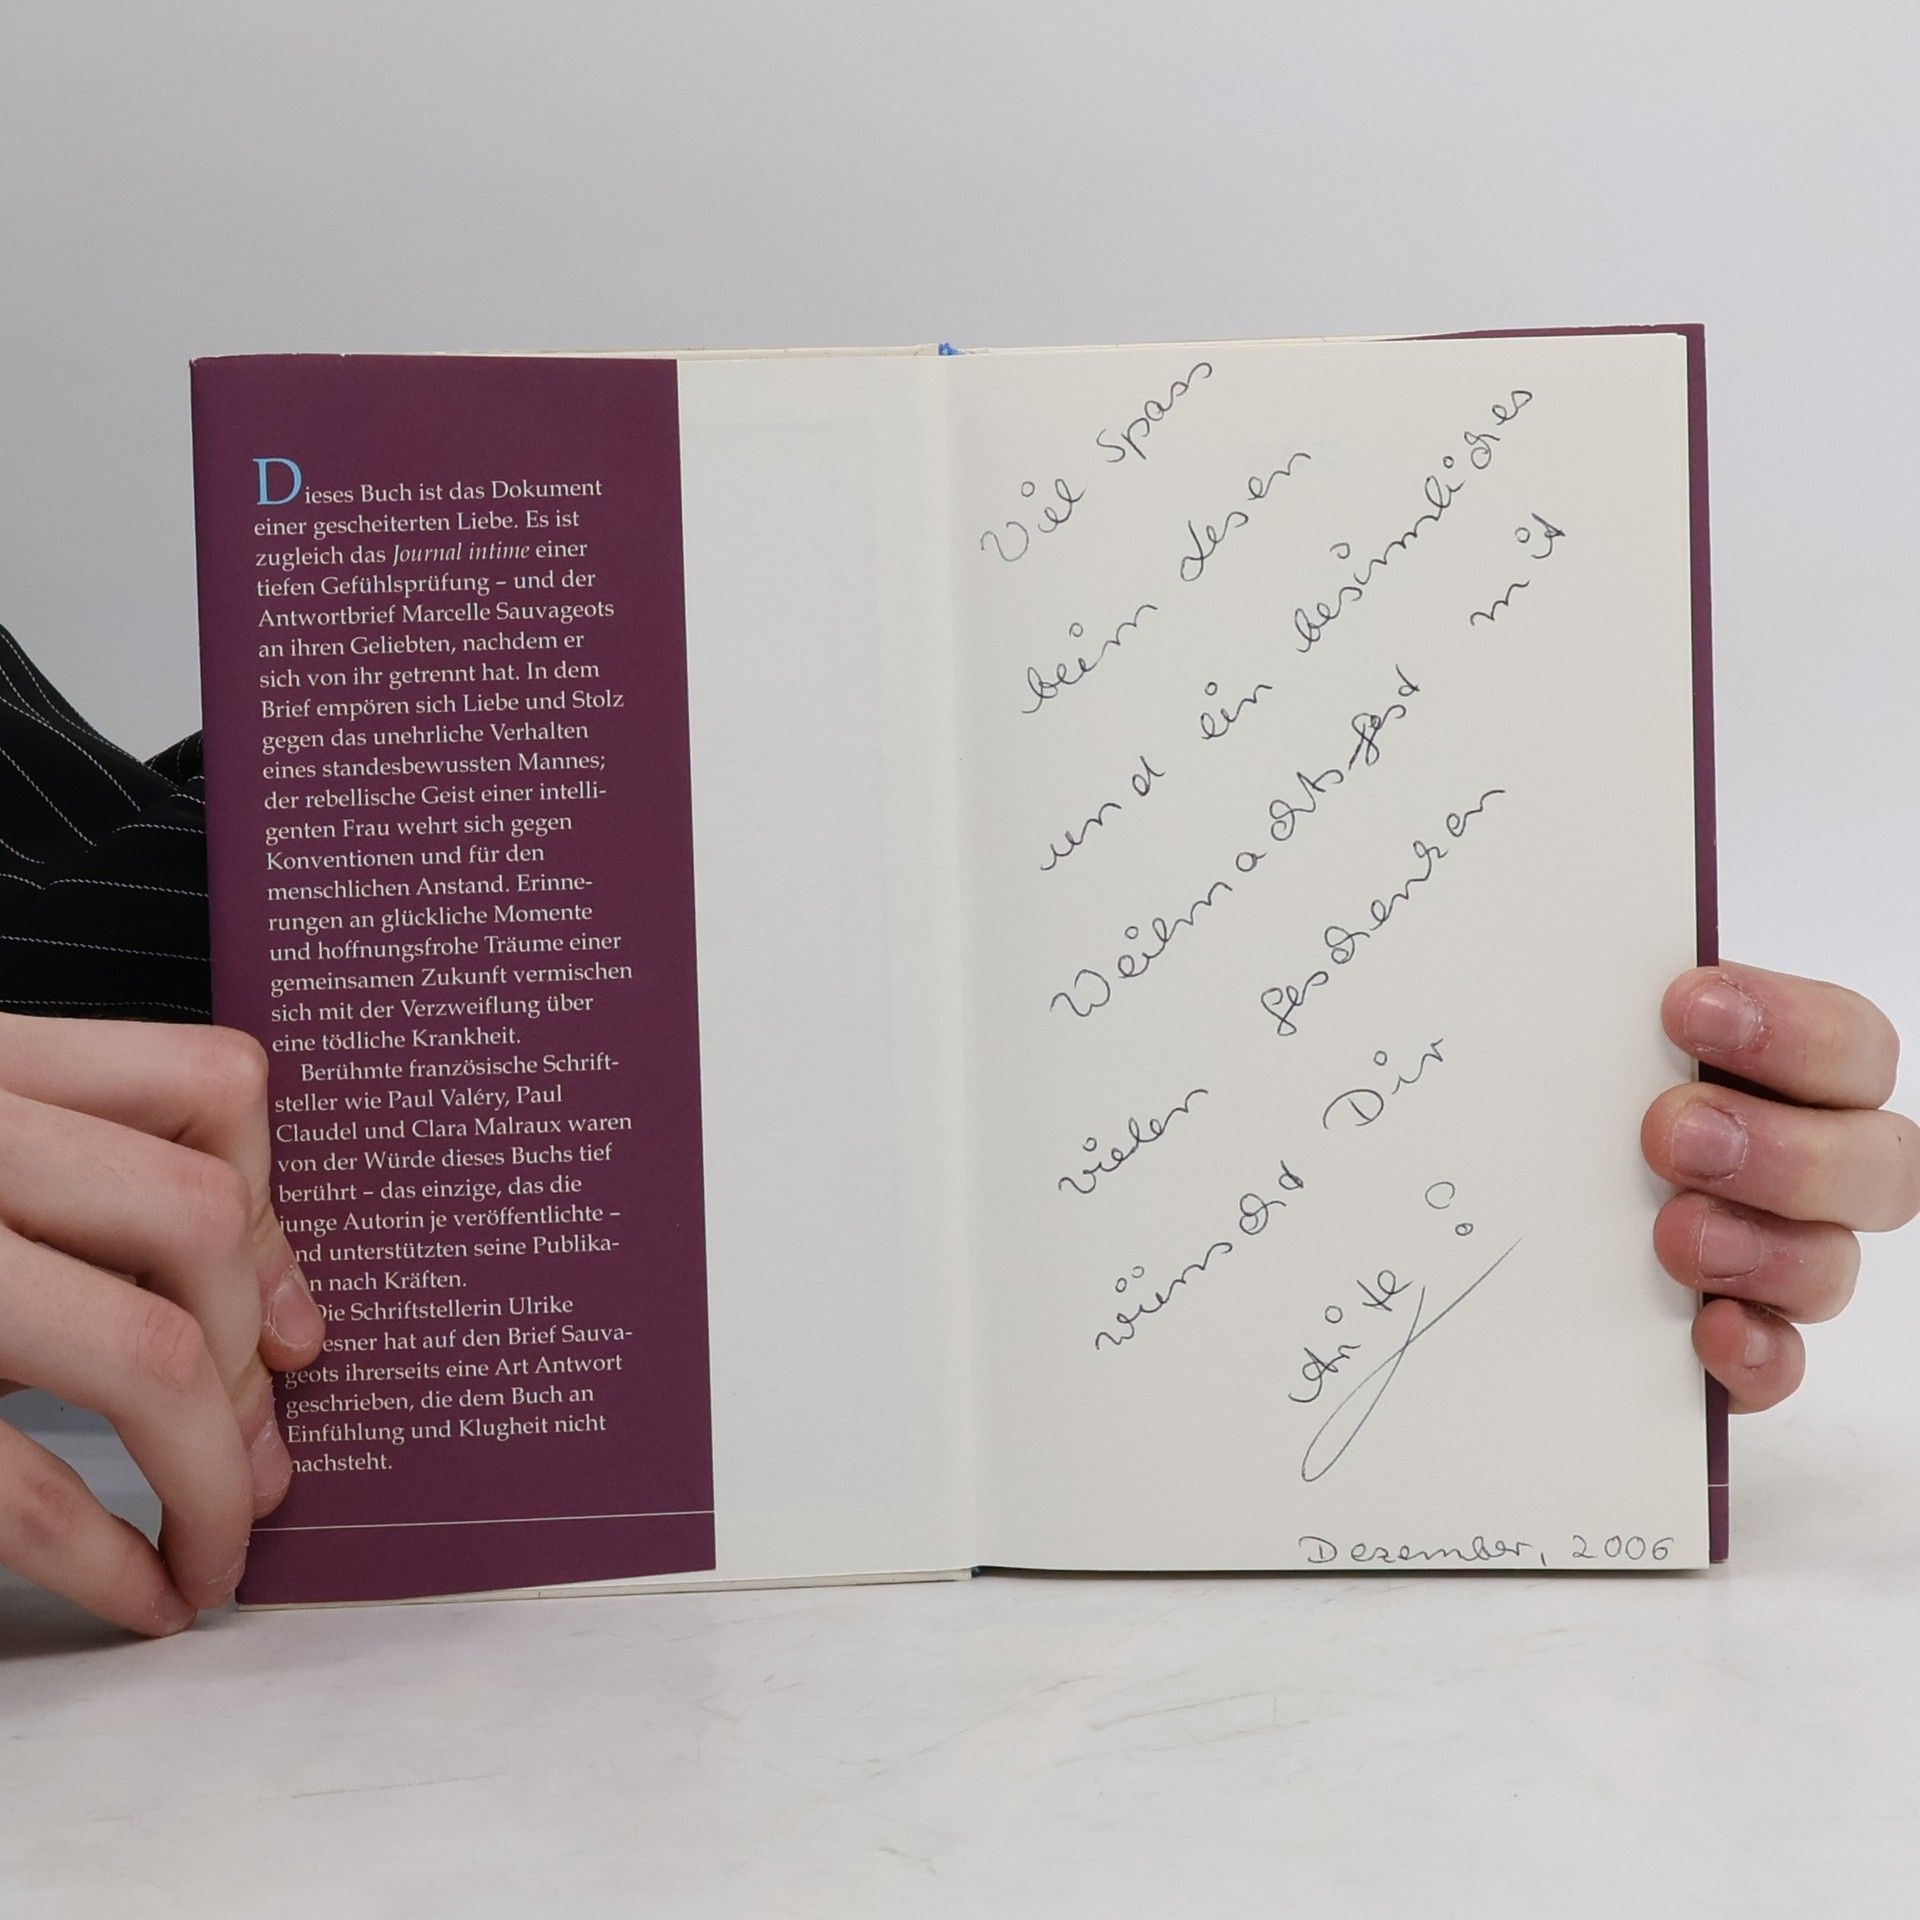 Dieses Buch ist das Dokument
einer gescheiterten Liebe. Es ist
zugleich das Journal intime einer
tiefen Gefühlsprüfung – und der
Antwortbrief Marcelle Sauvageots
an ihren Geliebten, nachdem er
sich von ihr getrennt hat. In dem
Brief empören sich Liebe und Stolz
gegen das unehrliche Verhalten
eines standesbewussten Mannes;
der rebellische Geist einer intelli-
genten Frau wehrt sich gegen
Konventionen und für den
menschlichen Anstand. Erinne-
rungen an glückliche Momente
und hoffnungsfrohe Träume einer
gemeinsamen Zukunft vermischen
sich mit der Verzweiflung über
eine tödliche Krankheit.
Berühmte französische Schrift-
steller wie Paul Valéry, Paul
Claudel und Clara Malraux waren
von der Würde dieses Buchs tief
berührt – das einzige, das die
junge Autorin je veröffentlichte –
nd unterstützten seine Publika-
n nach Kräften.
Die Schriftstellerin Ulrike
esner hat auf den Brief Sauva-
geots ihrerseits eine Art Antwort
geschrieben, die dem Buch an
Einfühlung und Klugheit nicht
nachsteht.
Viel Spass
beim Lesen
und ein besinnliches
Weihnachtsfest mit
vielen Geschenken
wünscht Dir
!
Dezember, 2006